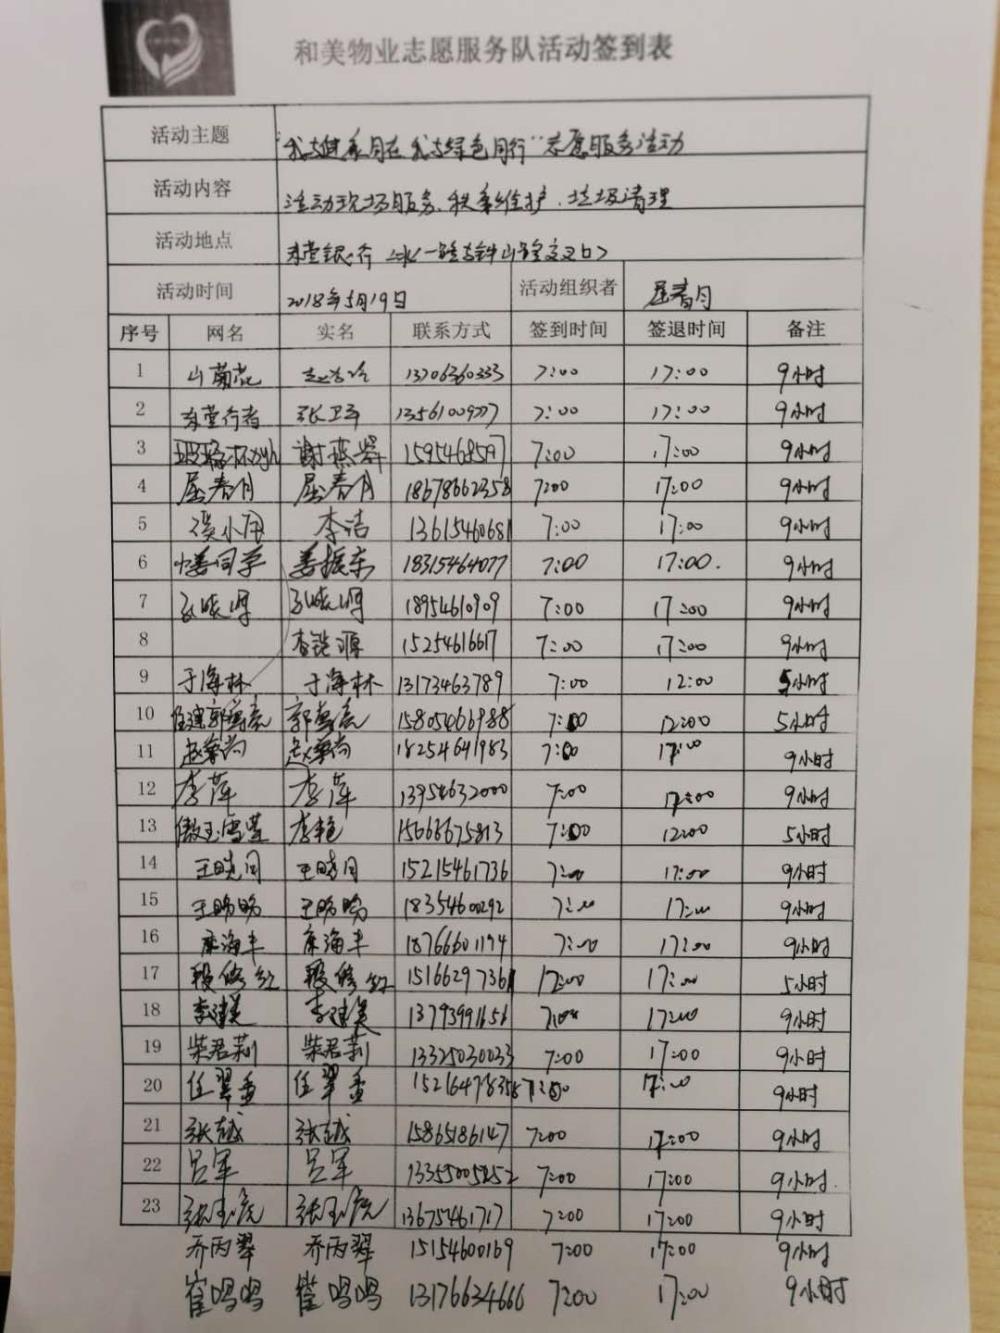 和美物业志愿服务队活动签到表
活动主题 "我与健康同在 我与绿色同行"志愿服务活动
活动内容 活动现场服务、秩序维护、垃圾清理
活动地点 东营银行
活动时间 2018年5月19日 活动组织者 屈春月
序号 网名 实名 联系方式 签到时间 签退时间 备注
1 山菊花 13706360333 7:00 17:00 9小时
2 东营行者 张卫军 7:00 17:00 9小时
3 谢燕翠 7:00 17:00 9小时
4 屈春月 屈春月 18678662358 7:00 17:00 9小时
5 李洁 13615460681 7:00 17:00 9小时
6 小姜同学 姜振东 18315464077 7:00 17:00. 9小时
7 18954610909 7:00 17:00 9小时
8 15254616617 7:00 17:00 9小时
9 于海林 于海林 13173463789 7:00 12:00 5小时
10 15805466988 7:00 12:00 5小时
11 18254641983 7:00 17:00 9小时
12 李萍 李萍 13954632000 7:00 17:00 9小时
13 李艳 15666675813 7:00 12:00 5小时
14 15215461736 7:00 17:00 9小时
15 18354600292 7:00 17:00 9小时
16 18766601194 7:00 17:00 9小时
17 15166297361 12:00 17:00 5小时
18 李建美 李建美 13793991656 7:00 17:00 9小时
19 柴君莉 柴君莉 13325030033 7:00 17:00 9小时
20 任翠香 任翠香 15216478358 7:00 17:00 9小时
21 张越 张越 15865186147 7:00 17:00 9小时
22 吕军 吕军 13355005252 7:00 17:00 9小时.
23 13675461717 7:00 17:00 9小时
乔丙翠 乔丙翠 15154600169 7:00 17:00 9小时
崔鸣鸣 崔鸣鸣 13176634666 7:00 17:00 9小时